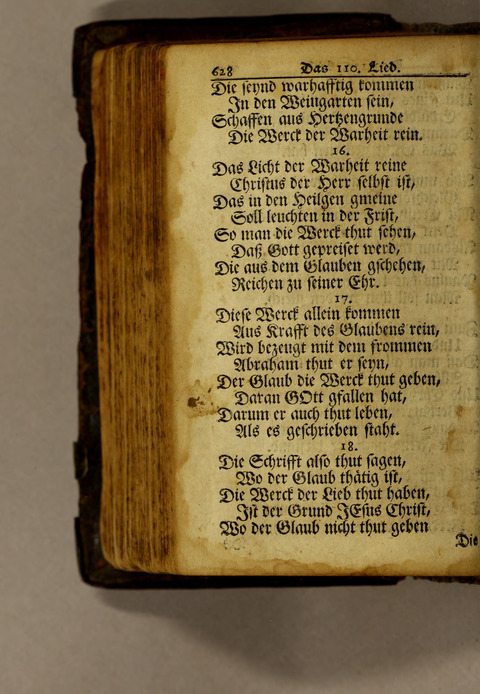 628 Das 110. Lied.
Die seynd warhafftig kommen
In den Weingarten sein,
Schaffen aus Hertzengrunde
Die Werck der Warheit rein.
16.
Das Licht der Warheit reine
Christus der Herr selbst ist,
Das in den Heilgen gmeine
Soll leuchten in der Frist,
So man die Werck thut sehen,
Daß Gott gepreiset werd,
Die aus dem Glauben gschehen,
Reichen zu seiner Ehr.
17.
Diese Werck allein kommen
Aus Krafft des Glaubens rein,
Wird bezeugt mit dem frommen
Abraham thut er seyn,
Der Glaub die Werck thut geben,
Daran GOtt gfallen hat,
Darum er auch thut leben,
Als es geschrieben staht.
18.
Die Schrifft also thut sagen,
Wo der Glaub thätig ist,
Die Werck der Lieb thut haben,
Ist der Grund JEsus Christ,
Wo der Glaub nicht thut geben
Die